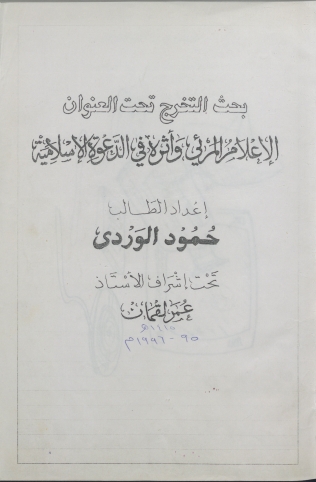 بحث التخرج تحت العنوان
الإعلام المرئي وأثره في الدعوة الإسلامية
إعداد الطالب
حمود الوردى
تحت إشراف الأستاذ
عمر لقمان
٩٥ - ١٩٩٦م